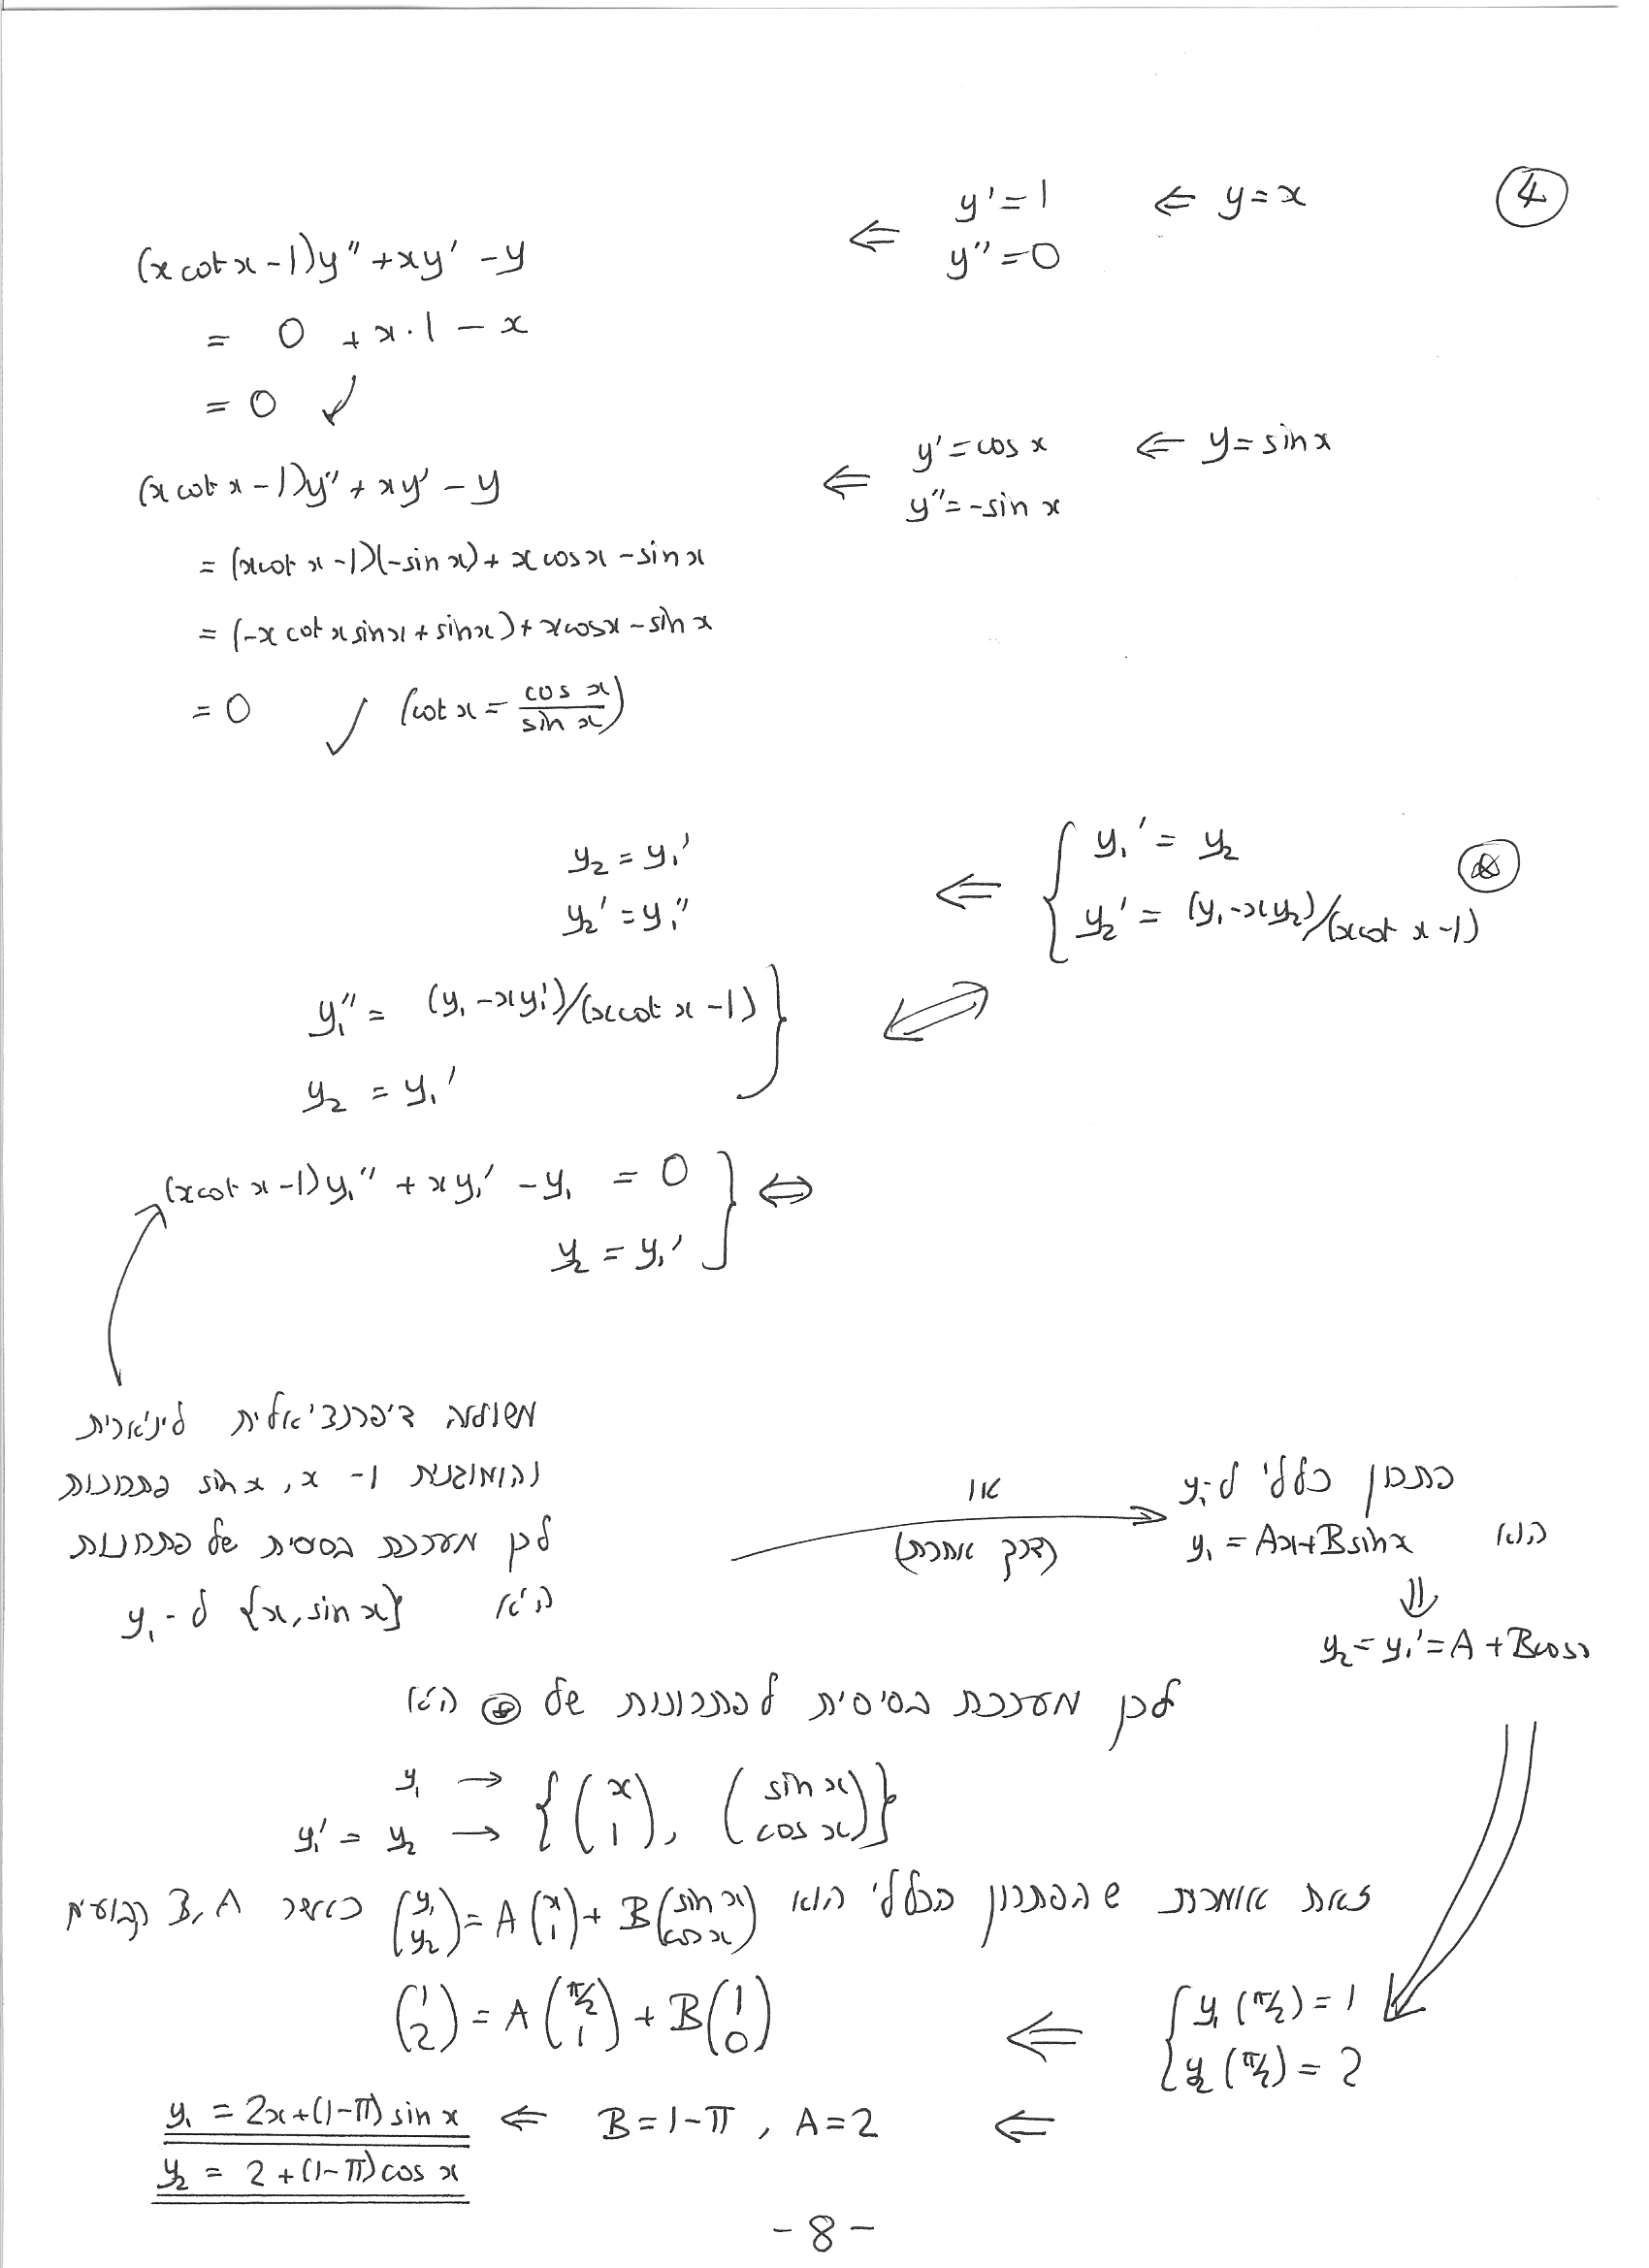 ④
y=x ⇐ y'=1
y''=0 ⇐
(x cot x -1)y'' + xy' - y
= 0 + x·1 - x
= 0 ✓
y=sin x ⇐ y'=cos x
y''=-sin x ⇐
(x cot x -1)y'' + xy' - y
= (x cot x -1)(-sin x) + x cos x - sin x
= (-x cot x sin x + sin x) + x cos x - sin x
= 0 ✓ (cot x = cos x / sin x)
{ y₁' = y₂
y₂' = (y₁-xy₂)/(x cot x -1) ⊛
⇐ y₂ = y₁'
y₂' = y₁''
y₁'' = (y₁-xy₁')/(x cot x -1) } ⇔
y₂ = y₁'
(x cot x -1)y₁'' + xy₁' - y₁ = 0 } ⇔
y₂ = y₁'
משוואה דיפרנציאלית לינארית
והומוגנית ו- x, sin x פתרונות
לכן מערכת בסיסית של פתרונות
ל- y₁ היא {x, sin x}
או
(דרך אחרת)
פתרון כללי ל-y₁
הוא y₁ = Ax+B sin x
⇓
y₂ = y₁' = A + B cos x
לכן מערכת בסיסית לפתרונות של ⊛ היא
y₁ → { ( x ), ( sin x ) }
y₁' = y₂ → { ( 1 ), ( cos x ) }
זאת אומרת שהפתרון הכללי הוא (y₁ y₂) = A (x 1) + B (sin x cos x) כאשר B, A קבועים
{ y₁(π/2) = 1
y₂(π/2) = 2
⇐ (1 2) = A (π/2 1) + B (1 0)
⇐ B = 1-π , A = 2 ⇐ y₁ = 2x+(1-π) sin x
y₂ = 2 + (1-π) cos x
- 8 -